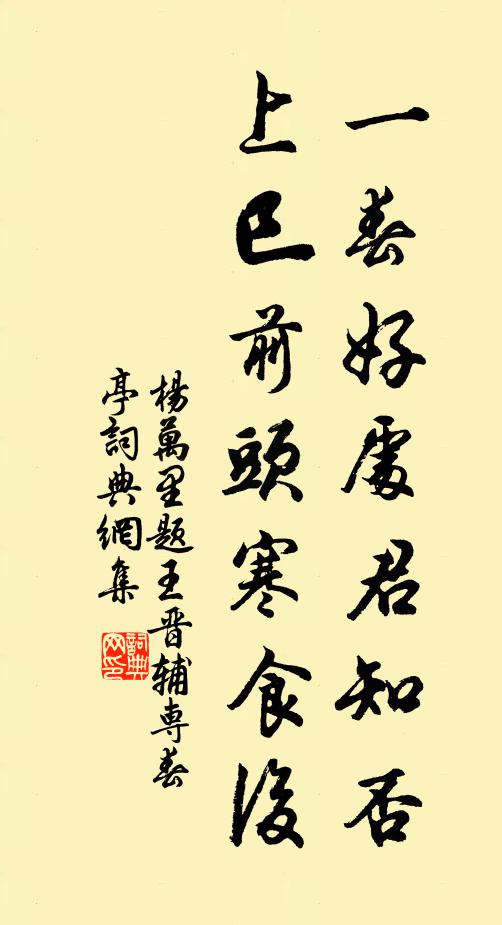 一春好處君知否
上巳前頭寒食後
楊萬里題王晋輔専春
亭詞典網集
詞典
网印